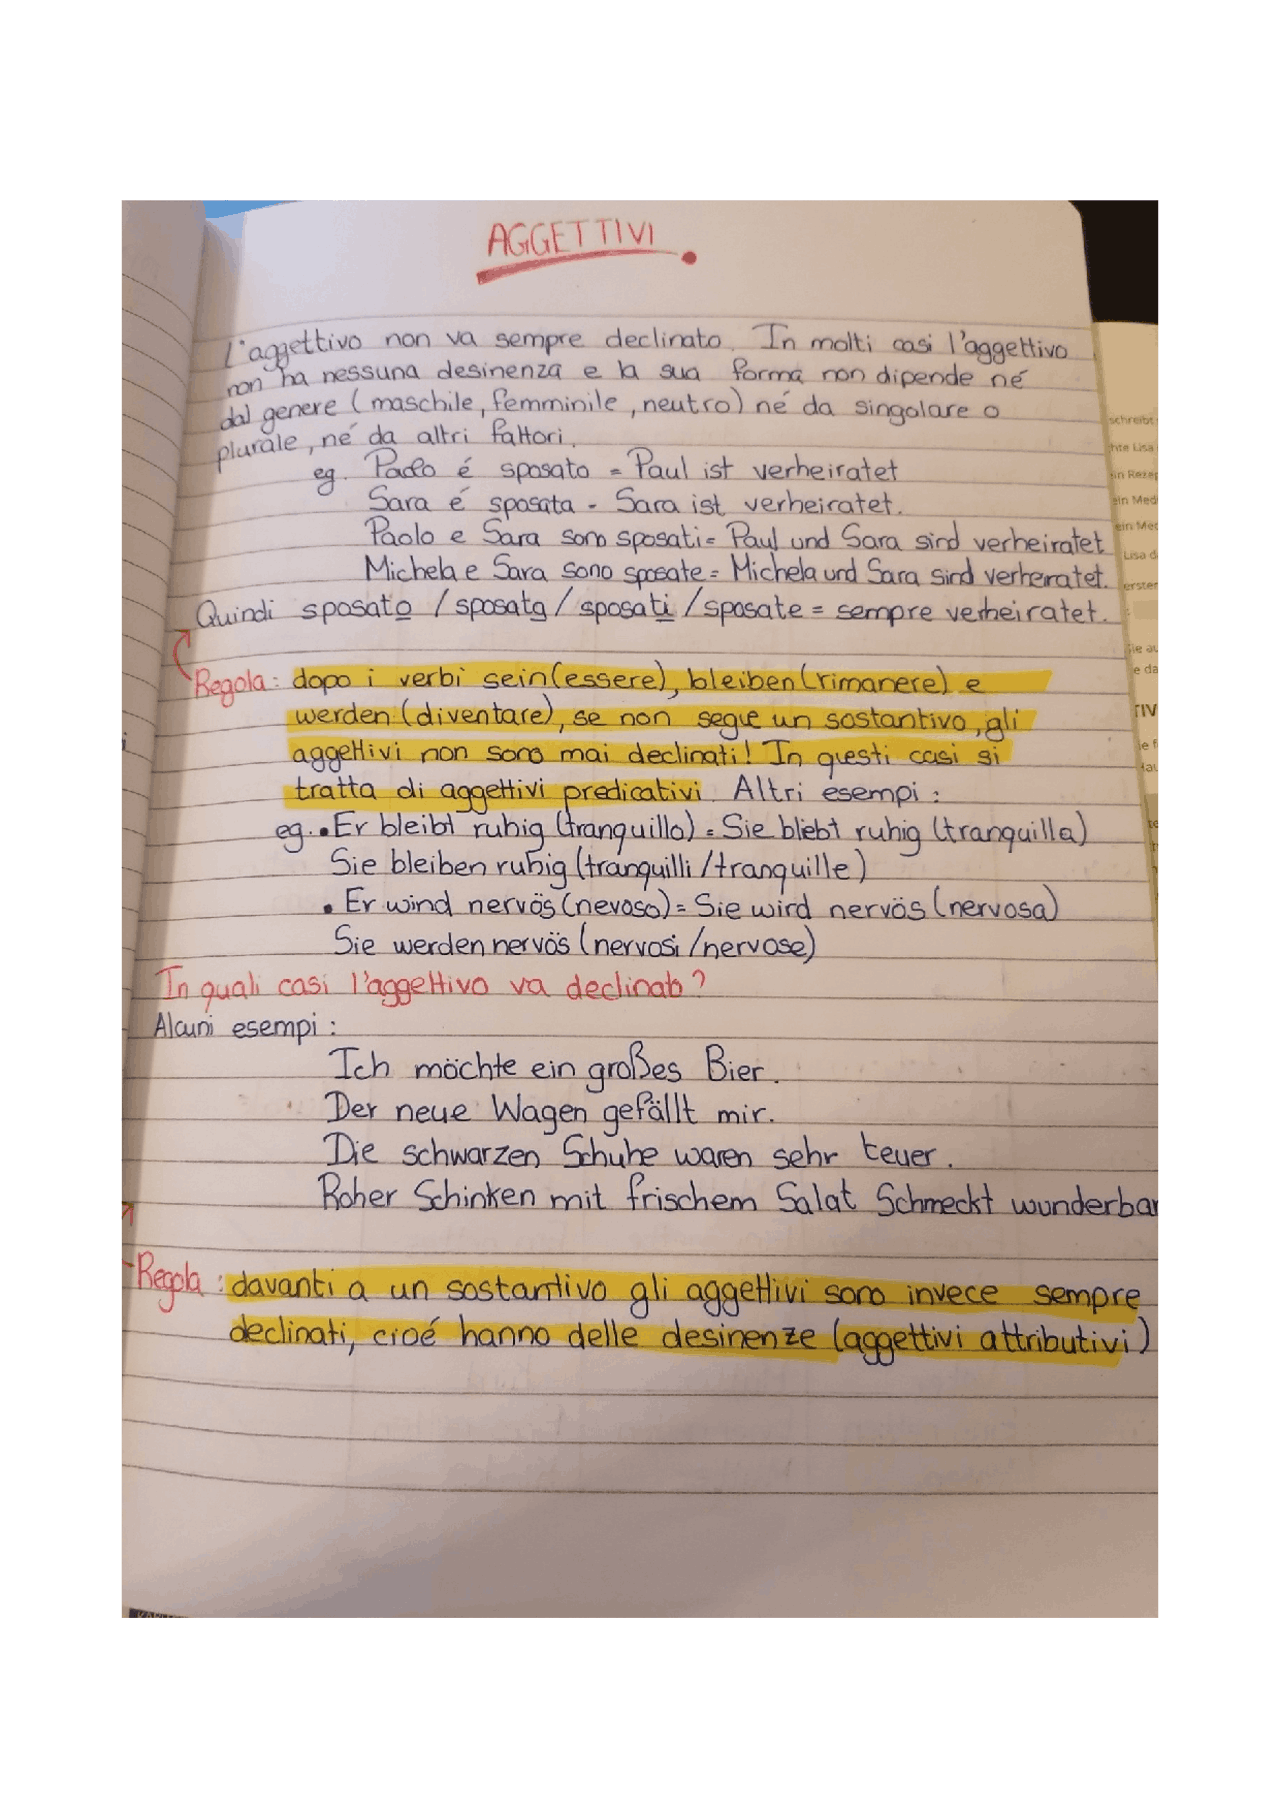 AGGETTIVI
L'aggettivo non va sempre declinato. In molti casi l'aggettivo
non ha nessuna desinenza e la sua forma non dipende né
dal genere (maschile, femminile, neutro) né da singolare o
plurale, né da altri fattori.
eg. Paolo é sposato = Paul ist verheiratet
Sara é sposata - Sara ist verheiratet.
Paolo e Sara sono sposati = Paul und Sara sind verheiratet
Michela e Sara sono sposate = Michela und Sara sind verheiratet.
Quindi sposato / sposata / sposati / sposate = sempre verheiratet.
Regola: dopo i verbi sein (essere), bleiben (rimanere) e
werden (diventare), se non segue un sostantivo, gli
aggettivi non sono mai declinati! In questi casi si
tratta di aggettivi predicativi. Altri esempi:
eg. • Er bleibt ruhig (tranquillo) = Sie bliebt ruhig (tranquilla)
Sie bleiben ruhig (tranquilli / tranquille)
• Er wind nervös (nevoso) = Sie wird nervös (nervosa)
Sie werden nervös (nervosi / nervose)
In quali casi l'aggettivo va declinato?
Alcuni esempi:
Ich möchte ein großes Bier.
Der neue Wagen gefällt mir.
Die schwarzen Schuhe waren sehr teuer.
Roher Schinken mit frischem Salat Schmeckt wunderbar
Regola: davanti a un sostantivo gli aggettivi sono invece sempre
declinati, cioé hanno delle desinenze (aggettivi attributivi)
schreibt
hte Lisa
in Rezep
ein Med
ein Med
Lisa d
erster